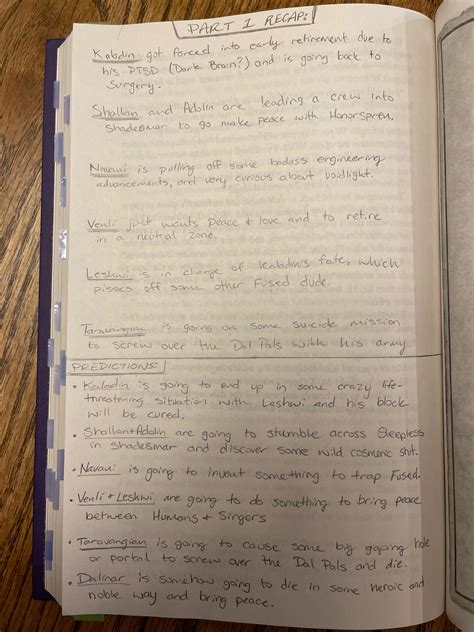 PART 1 RECAP:
Kaladin got forced into early retirement due to
his PTSD (Dark Brain?) and is going back to
Surgery.
Shallan and Adolin are leading a crew into
Shadesmar to go make peace with Honorspren.
Navani is pulling off some badass engineering
advancements, and very curious about voidlight.
Venli just wants peace & love and to retire
in a neutral zone.
Leshwi is in charge of Kaladin's fate, which
pisses off some other Fused dude.
Taravangian is going on some suicide mission
to screw over the Dal Pals with his army.
PREDICTIONS:
• Kaladin is going to end up in some crazy life-
threatening situation with Leshwi and his block
will be cured.
• Shallan+Adolin are going to stumble across Sleepless
in Shadesmar and discover some wild cosmeric sht.
• Navani is going to invent something to trap Fused.
• Venli + Leshwi are going to do something to bring peace
between Humans + Singers
• Taravangian is going to cause some big gaping hole
or portal to screw over the Dal Pals and die.
• Dalinar is somehow going to die in some heroic and
noble way and bring peace.